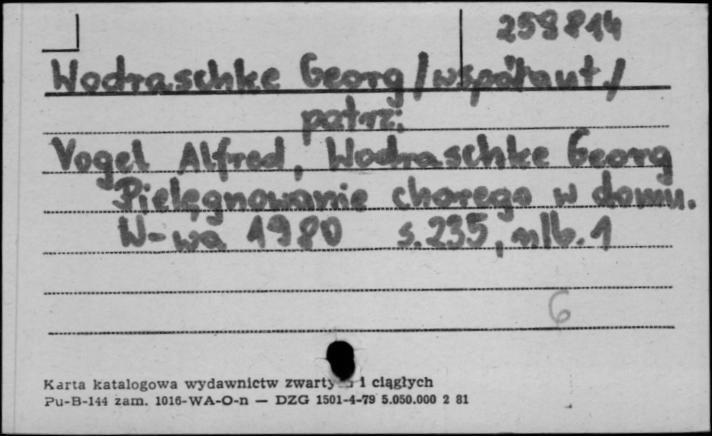 258814
Wodraschke Georg /współaut./
patrz:
Vogel Alfred, Wodraschke Georg
Pielęgnowanie chorego w domu.
W-wa 1980 s. 235, nlb. 1
6
Karta katalogowa wydawnictw i ciągłych
Pu-B-144 zam. 1016-WA-O-n — DZG 1501-4-79 5.050.000 2 81